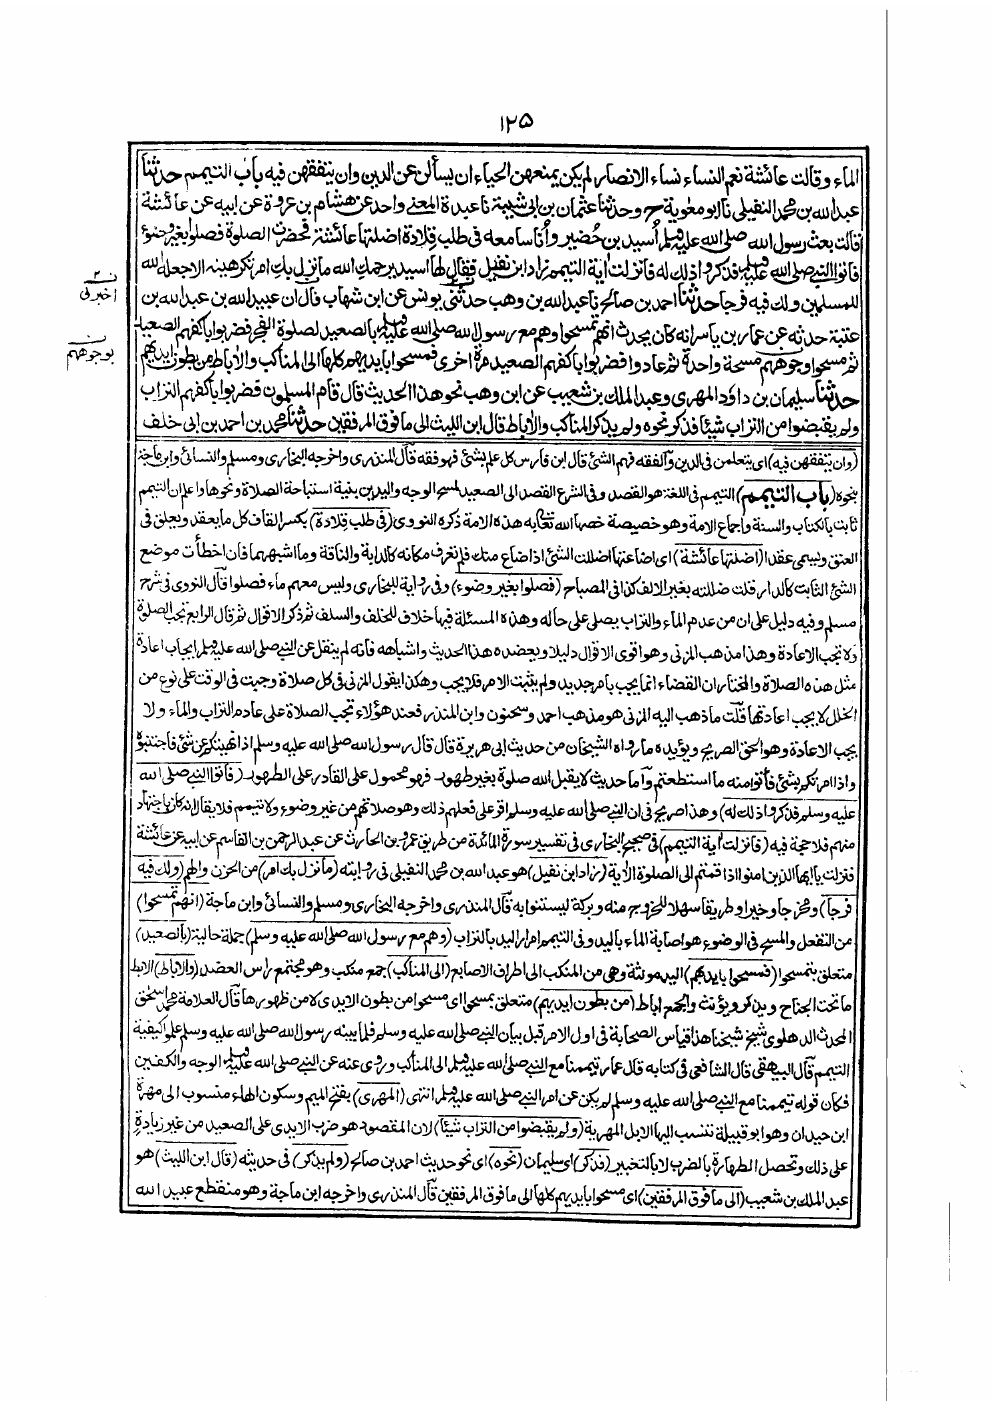 ١٢٥
الماء وقالت عائشة نعم النساء نساء الانصار لم يكن يمنعهن الحياء ان يسألن عن الدين وان يتفقهن فيه باب التيمم حدثنا
عبد الله بن محمد النفيلى نا ابو معوية ح وحدثنا عثمان بن ابى شيبة نا عبدة المعنى واحد عن هشام بن عروة عن ابيه عن عائشة
قالت بعث رسول الله صلى الله عليه وسلم اسيد بن حضير وأناسا معه فى طلب قلادة اضلتها عائشة فحضرت الصلوة فصلوا بغير وضوء
فأتوا النبى صلى الله عليه وسلم فذكروا ذلك له فانزلت اية التيمم زاد ابن نفيل فقال لها اسيد يرحمك الله ما نزل بك امر تكرهينه الا جعله الله
للمسلمين ولك فيه فرجا حدثنا احمد بن صالح نا عبد الله بن وهب حدثنى يونس عن ابن شهاب قال ان عبيد الله بن عبد الله بن
٢ اخبرنى
عتبة حدثه عن عمار بن ياسر انه كان يحدث انهم تمسحوا وهم مع رسول الله صلى الله عليه وسلم بالصعيد لصلوة الفجر فضربوا باكفهم الصعيد
ثم مسحوا وجوههم مسحة واحدة ثم عادوا فضربوا باكفهم الصعيد مرة اخرى فمسحوا بايديهم كلها الى المناكب والأباط من بطون ايديهم
بوجوههم
حدثنا سليمان بن داؤد المهرى وعبد الملك بن شعيب عن ابن وهب نحو هذا الحديث قال قام المسلمون فضربوا باكفهم التراب
ولم يقبضوا من التراب شيئا فذكر نحوه ولم يذكر المناكب والأباط قال ابن الليث الى ما فوق المرفقين حدثنا محمد بن احمد بن ابى خلف
(وان يتفقهن فيه) اى يتعلمن فى الدين والفقه فهم الشئ قال ابن فارس كل علم بشئ فهو فقه قال المنذرى واخرجه البخارى ومسلم والنسائى وابن ماجة
بنحوه (باب التيمم) التيمم فى اللغة هو القصد وفى الشرع القصد الى الصعيد لمسح الوجه واليدين بنية استباحة الصلاة ونحوها واعلم ان التيمم
ثابت بالكتاب والسنة واجماع الامة وهو خصيصة خصها الله تعالى به هذه الامة ذكره النووى (فى طلب قلادة) بكسر القاف كل ما يعقد ويعلق فى
العنق ويسمى عقدا (اضلتها عائشة) اى اضاعتها اضللت الشئ اذا ضاع منك فلم تعرف مكانه كالدابة والناقة وما اشبههما فان اخطأت موضع
الشئ الثابت كالدار قلت ضللته بغير الالف كذا فى المصباح (فصلوا بغير وضوء) وفى رواية للبخارى وليس معهم ماء فصلوا قال النووى فى شرح
مسلم وفيه دليل على ان من عدم الماء والتراب يصلى على حاله وهذه المسئلة فيها خلاف للخلف والسلف ثم ذكر الاقوال ثم قال الرابع تجب الصلوة
ولا تجب الاعادة وهذا مذهب المزنى وهو اقوى الاقوال دليلا ويعضده هذا الحديث واشباهه فانه لم ينقل عن النبى صلى الله عليه وسلم ايجاب اعادة
مثل هذه الصلاة والمختار ان القضاء انما يجب بامر جديد ولم يثبت الامر فلا يجب وهكذا يقول المزنى فى كل صلاة وجبت فى الوقت على نوع من
الخلل لا يجب اعادتها قلت ما ذهب اليه المزنى هو مذهب احمد وسحنون وابن المنذر فعند هؤلاء تجب الصلاة على عادم التراب والماء ولا
يجب الاعادة وهو الحق الصريح ويؤيده ما رواه الشيخان من حديث ابى هريرة قال قال رسول الله صلى الله عليه وسلم اذا نهيتكم عن شئ فاجتنبوه
واذا امرتكم بشئ فأتوا منه ما استطعتم وأما حديث لا يقبل الله صلوة بغير طهور فهو محمول على القادر على الطهور (فأتوا النبى صلى الله
عليه وسلم فذكروا ذلك له) وهذا صريح فى ان النبى صلى الله عليه وسلم اقر على فعلهم ذلك وهو صلاتهم من غير وضوء ولا تيمم فلا يقال انه كان باجتهاد
منهم فلا حجة فيه (فانزلت اية التيمم) فى صحيح البخارى فى تفسير سورة المائدة من طريق عمرو بن الحارث عن عبد الرحمن بن القاسم عن ابيه عن عائشة
فنزلت يا ايها الذين امنوا اذا قمتم الى الصلوة الأية (زاد ابن نفيل) هو عبد الله بن محمد النفيلى فى روايته (ما نزل بك امر) من الحزن والهم (ولك فيه
فرجا) ومخرجا وخيرا وطريقا سهلا للخروج منه وبركة ليستنوا به قال المنذرى واخرجه البخارى ومسلم والنسائى وابن ماجة (انهم تمسحوا)
من التفعل والمسح فى الوضوء هو اصابة الماء باليد وفى التيمم امرار اليد بالتراب (وهم مع رسول الله صلى الله عليه وسلم) جملة حالية (بالصعيد)
متعلق بتمسحوا (فمسحوا بايديهم) اليد مونثة وهى من المنكب الى اطراف الاصابع (الى المناكب) جمع منكب وهو مجتمع راس العضد (والاباط) الابط
ما تحت الجناح ويذكر ويؤنث والجمع اباط (من بطون ايديهم) متعلق بمسحوا اى مسحوا من بطون الايدى لا من ظهورها قال العلامة محمد اسحق
المحدث الدهلوى شيخ شيخنا هذا قياس الصحابة فى اول الامر قبل بيان النبى صلى الله عليه وسلم فلما بينه رسول الله صلى الله عليه وسلم علموا كيفية
التيمم قال البيهقى قال الشافعى فى كتابه قال عمار تيممنا مع النبى صلى الله عليه وسلم الى المناكب وروى عنه عن النبى صلى الله عليه وسلم الوجه والكفين
فكان قوله تيممنا مع النبى صلى الله عليه وسلم لم يكن عن امر النبى صلى الله عليه وسلم انتهى (المهرى) بفتح الميم وسكون الهاء منسوب الى مهرة
ابن حيدان وهو ابو قبيلة تنسب اليها الابل المهرية (ولم يقبضوا من التراب شيئا) لان المقصود هو ضرب الايدى على الصعيد من غير زيادة
على ذلك وتحصل الطهارة بالضرب لا بالتخبير (فذكر) اى سليمان (نحوه) اى نحو حديث احمد بن صالح (ولم يذكر) فى حديثه (قال ابن الليث) هو
عبد الملك بن شعيب (الى ما فوق المرفقين) اى مسحوا بايديهم كلها الى ما فوق المرفقين قال المنذرى واخرجه ابن ماجة وهو منقطع عبيد الله